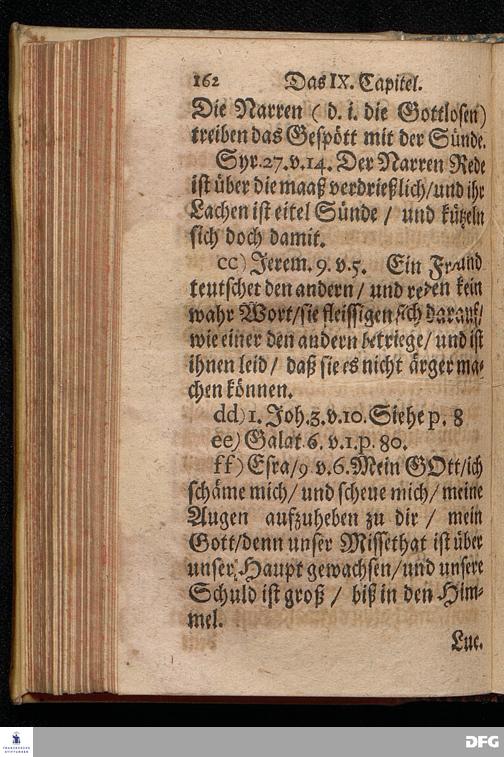 162 Das IX. Capitel.
Die Narren (d. i. die Gottlosen)
treiben das Gespött mit der Sünde.
Syr. 27. v. 14. Der Narren Rede
ist über die maaß verdrießlich/und ihr
Lachen ist eitel Sünde / und kützeln
sich doch damit.
cc) Jerem. 9. v. 5. Ein Freund
teuschet den andern / und reden kein
wahr Wort/sie fleissigen sich darauf/
wie einer den andern betriege/ und ist
ihnen leid / daß sie es nicht ärger ma-
chen können.
dd) 1. Joh. 3. v. 10. Siehe p. 8
ee) Galat. 6. v. 1. p. 80.
ff) Esra/9 v. 6. Mein GOtt/ich
schäme mich/ und scheue mich/ meine
Augen aufzuheben zu dir / mein
Gott/denn unser Missethat ist über
unser Haupt gewachsen/und unsere
Schuld ist groß / biß in den Him-
mel.
Luc.
FRANCKESCHE
STIFTUNGEN
DFG